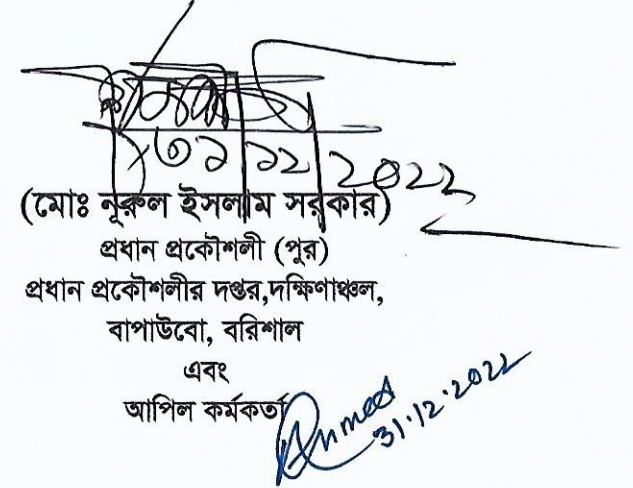 ৩১/১২/2022
(মোঃ নূরুল ইসলাম সরকার)
প্রধান প্রকৌশলী (পুর)
প্রধান প্রকৌশলীর দপ্তর,দক্ষিণাঞ্চল,
বাপাউবো, বরিশাল
এবং
আপিল কর্মকর্তা
Ahmed
31.12.2022